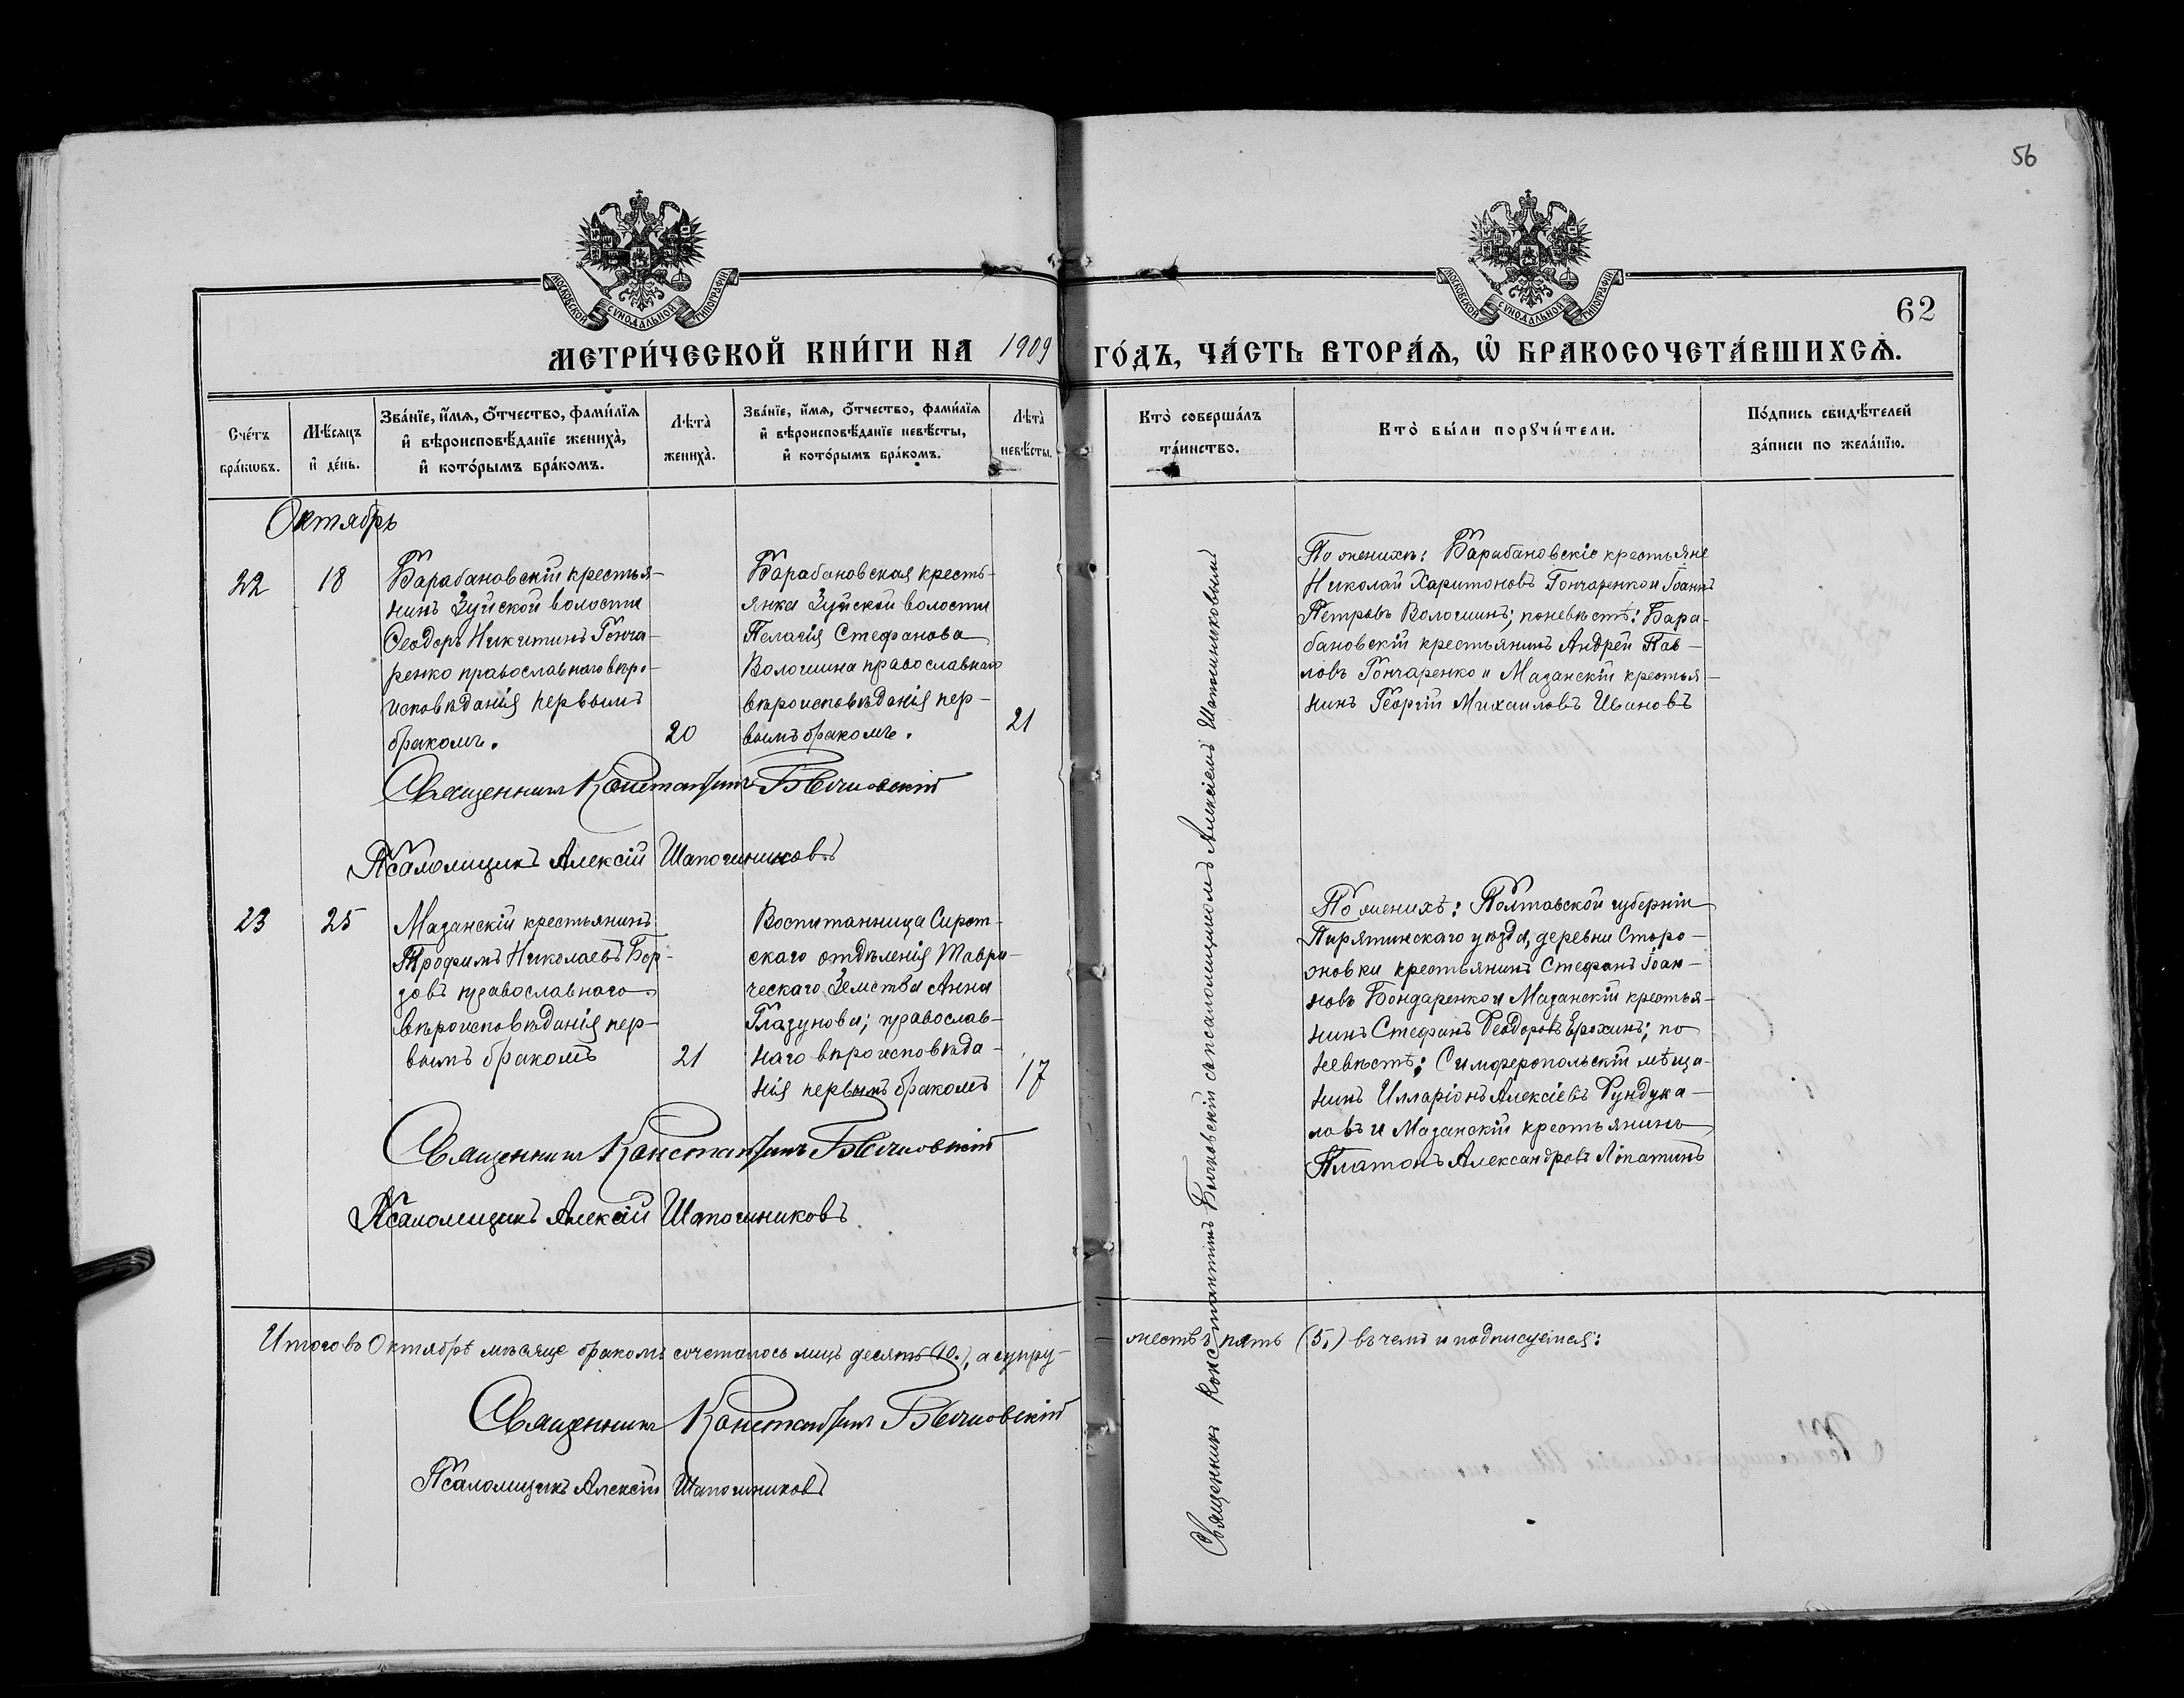 56
МОСКОВСКОЙ СѴНОДАЛЬНОЙ ТИПОГРАФІИ
МОСКОВСКОЙ СѴНОДАЛЬНОЙ ТИПОГРАФІИ
62
МЕТРИ́ЧЕСКОЙ КНИ́ГИ НА 1909 ГО́ДЪ, ЧА́СТЬ ВТОРА́Ѧ, Ѽ БРАКОСОЧЕТА́ВШИХСѦ.
Сче́тъ
бра́кѡвъ.
Мѣ́сѧцъ
и҆ де́нь.
Зва́нїе, и҆́мѧ, ѻ҆́тчество, фами́лїѧ
и҆ вѣроисповѣ́данїе жениха̀,
и҆ кото́рымъ бра́комъ.
Лѣта̀
жениха̀.
Зва́нїе, и҆́мѧ, ѻ҆́тчество, фами́лїѧ
и҆ вѣроисповѣ́данїе невѣ́сты,
и҆ кото́рымъ бра́комъ.
Лѣта̀
невѣ́сты.
Кто̀ соверша́лъ
та́инство.
Кто̀ бы́ли порꙋчи́тели.
По́дпись свидѣ́телей
за́писи по жела́нїю.
Октябрь
22
18
Барабановскій крестья-
нинъ Зуйской волости
Ѳеодоръ Никитинъ Гонча-
ренко православнаго вѣро-
исповѣданія первымъ
бракомъ.
20
Барабановская кресть-
янка Зуйской волости
Пелагія Стефанова
Волошина православнаго
вѣроисповѣданія пер-
вымъ бракомъ.
21
По женихѣ: Барабановскіе крестьяне
Николай Харитоновъ Гончаренко и Іоаннъ
Петровъ Волошинъ; по невѣстѣ: Бара-
бановскій крестьянинъ Андрей Пав-
ловъ Гончаренко и Мазанскій крестья-
нинъ Георгій Михаиловъ Ивановъ
Священникъ Константинъ Бычковскій
Псаломщикъ Алексій Шапошниковъ
23
25
Мазанскій крестьянинъ
Трофимъ Николаевъ Бор-
зовъ православнаго
вѣроисповѣданія пер-
вымъ бракомъ
21
Воспитанница Сирот-
скаго отдѣленія Таври-
ческаго Земства Анна
Глазунова; православ-
наго вѣроисповѣда-
нія первымъ бракомъ
17
По женихѣ: Полтавской губерніи
Пирятинскаго уѣзда, деревни Сторо-
жовки крестьянинъ Стефанъ Іоан-
новъ Бондаренко и Мазанскій крестья-
нинъ Стефанъ Ѳеодоровъ Ерохинъ; по
невѣстѣ: Симферопольскій мѣща-
нинъ Илларіонъ Алексіевъ Рундука-
ловъ и Мазанскій крестьянинъ
Платонъ Александровъ Лопатинъ
Священникъ Константинъ Бычковскій
Псаломщикъ Алексій Шапошниковъ
Священникъ Константинъ Бычковскій съ псаломщикомъ Алексіемъ Шапошниковымъ
Итого въ Октябрѣ мѣсяце бракомъ сочеталось лицъ десять (10.), а супру-
жествъ пять (5.) въ чемъ и подписуемся:
Священникъ Константинъ Бычковскій
Псаломщикъ Алексій Шапошниковъ